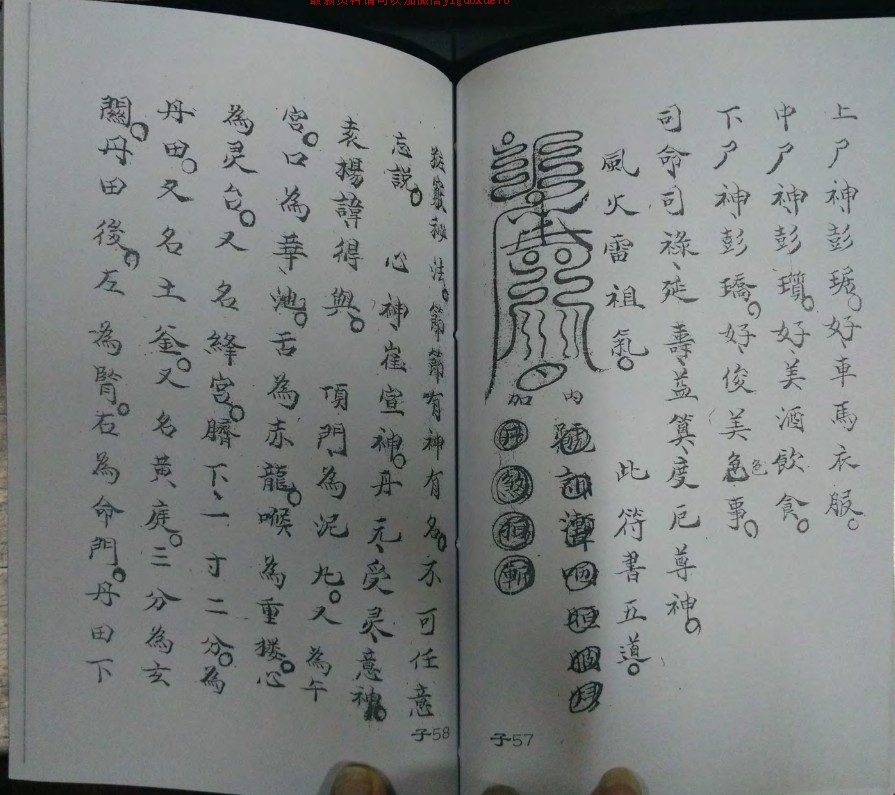 最新资料请可以加微信yiguoxue16
上尸神彭琚。好車馬衣服。
中尸神彭瓆。好美酒飲食。
下尸神彭矯。好俊美色事。
色
司命司祿、延壽、益筭、度厄尊神。
風火雷祖氣。 此符書五道。
內
加
子57
秘法。節節有神有名。不可任意
忘説。 心神崔宣神。丹元、受灵、意神
袁楊諱得與。 頂門為泥丸。又為午
宮。口為華池。舌為赤龍。喉為重楼。心
為灵台。又名絳宮。臍下、一寸二分。為
丹田。又名土釜。又名黃庭。三分為玄
關。丹田後。左為腎。右為命門。丹田下
子58